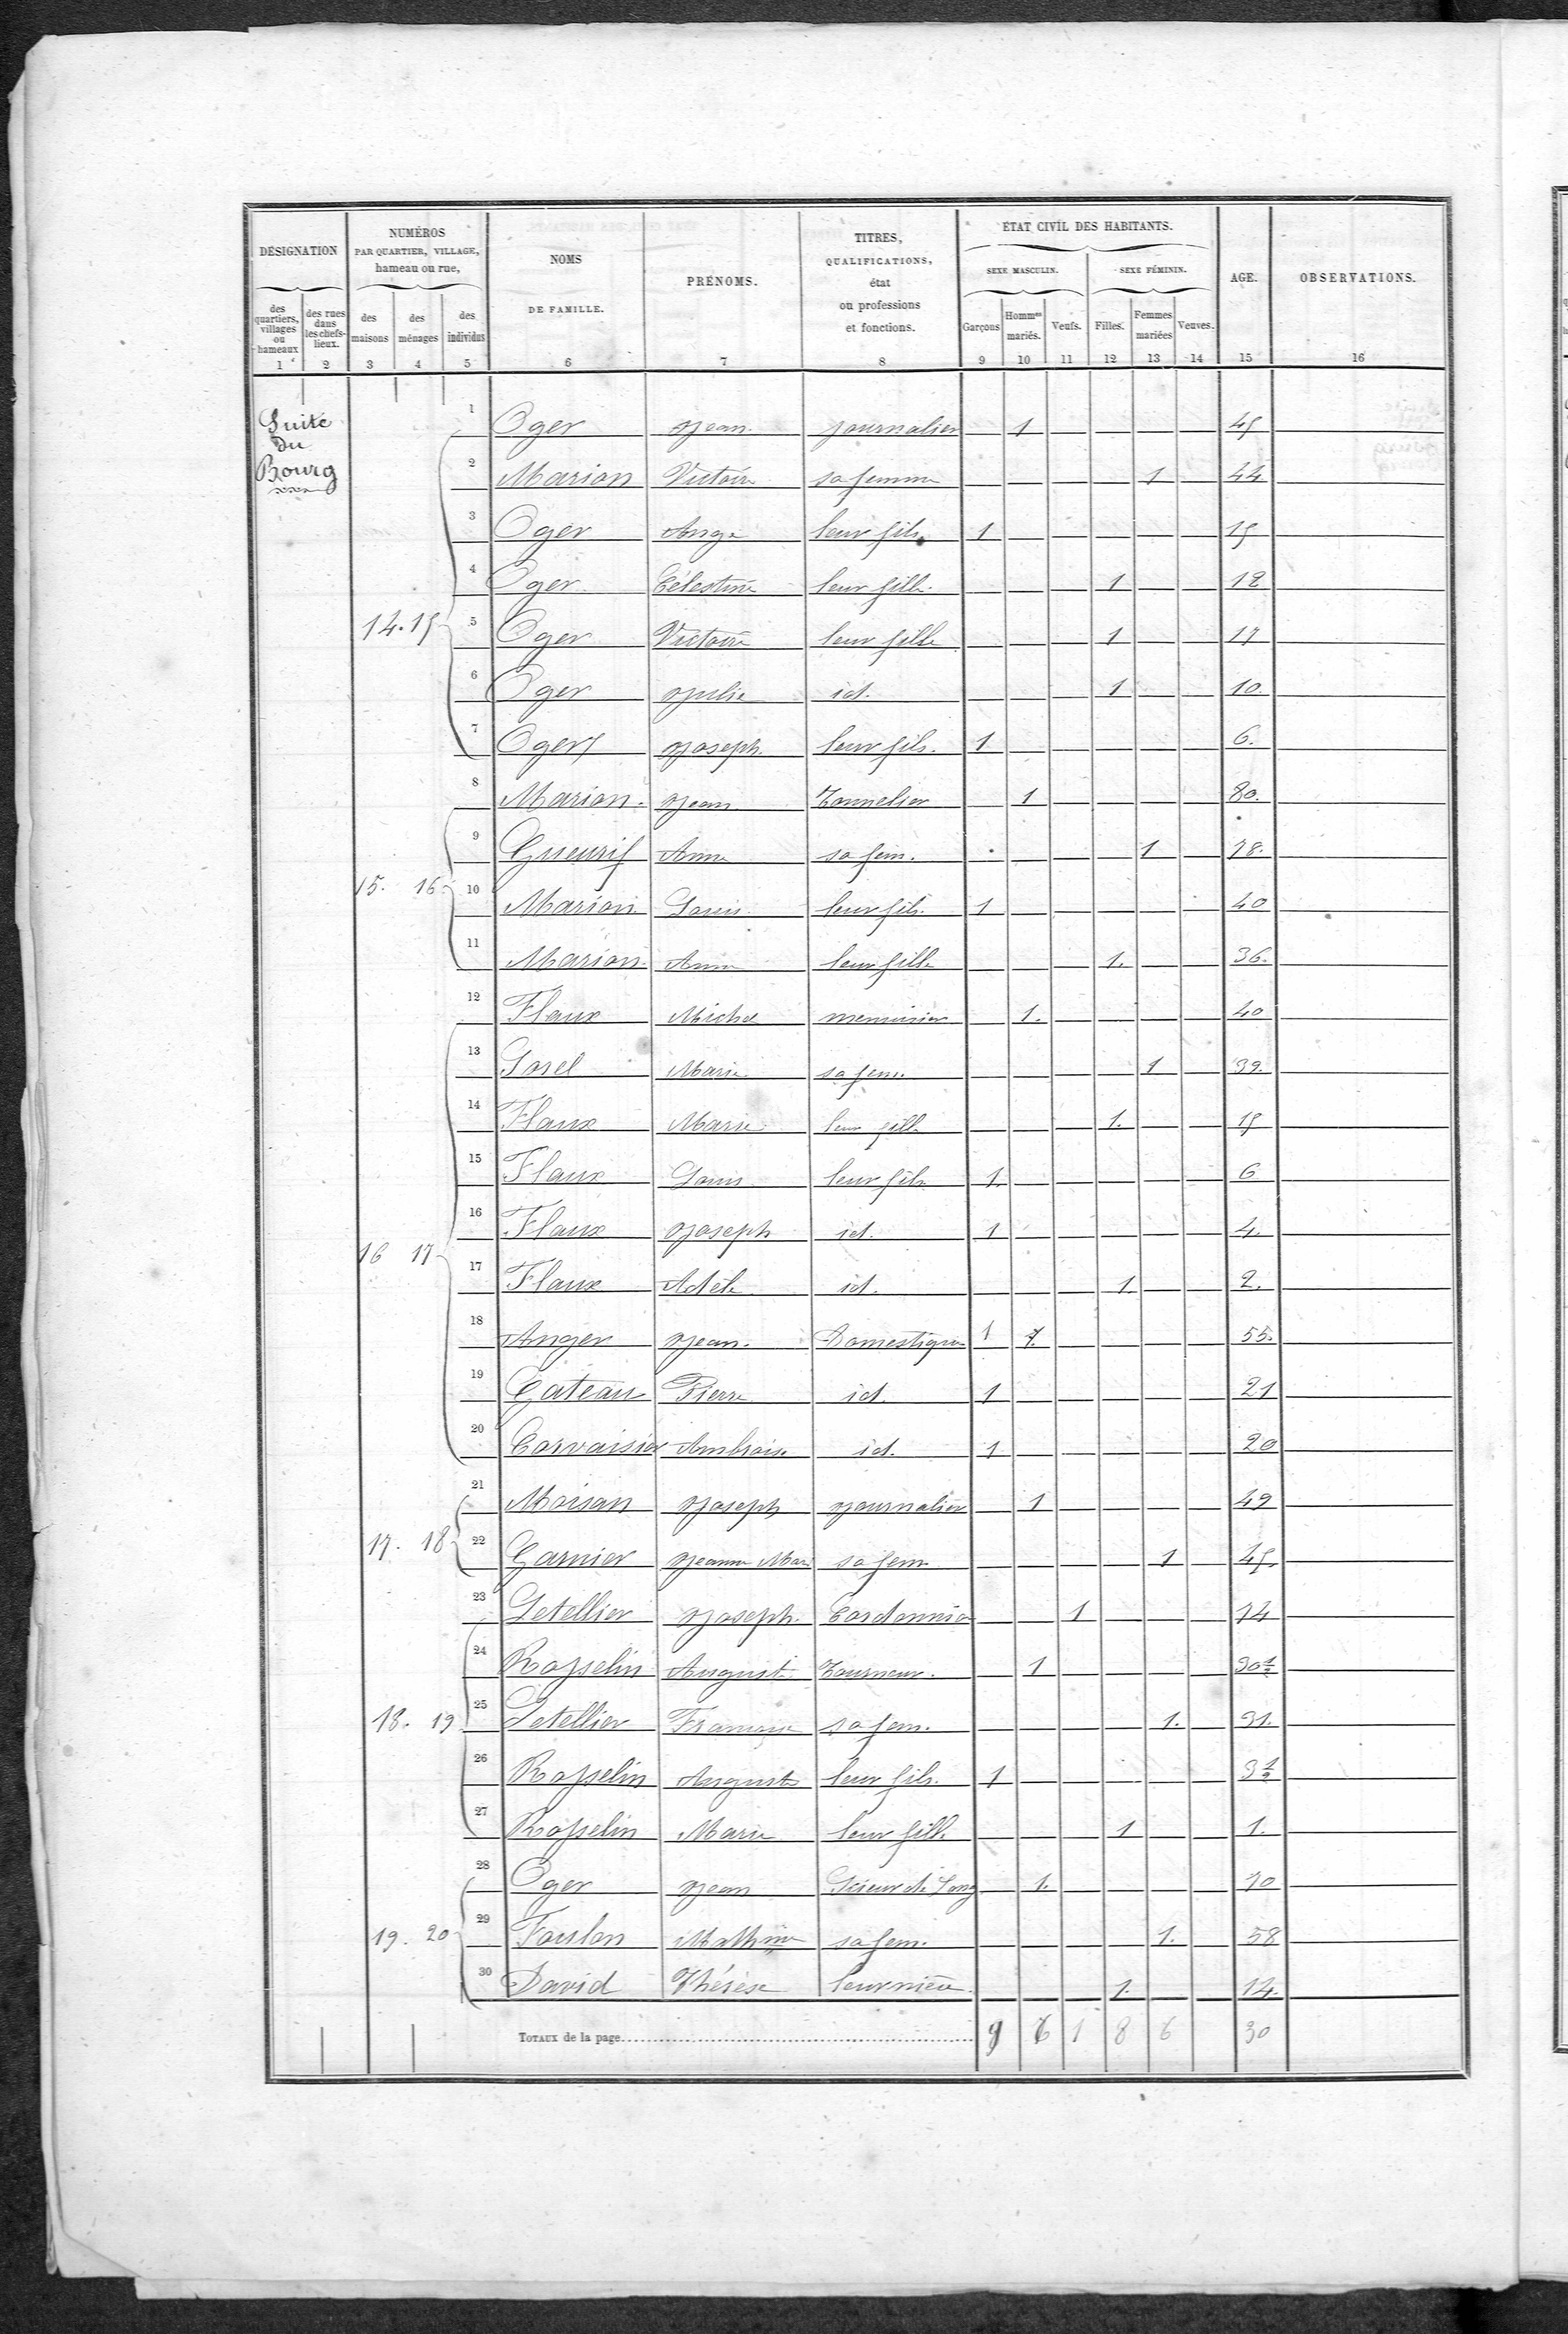 DÉSIGNATION
des quartiers, villages ou hameaux
des rues dans les chefs-lieux.
NUMÉROS
PAR QUARTIER, VILLAGE,
hameau ou rue,
des maisons
des ménages
des individus
NOMS
DE FAMILLE.
PRÉNOMS.
TITRES,
QUALIFICATIONS,
état
ou professions
et fonctions.
ÉTAT CIVIL DES HABITANTS.
SEXE MASCULIN.
SEXE FÉMININ.
Garçons
Hommes mariés.
Veufs.
Filles.
Femmes mariées
Veuves.
AGE.
OBSERVATIONS.
1 2 3 4 5 6 7 8 9 10 11 12 13 14 15 16
Suite
du
Bourg
1 Oger Jean journalier 1 45
2 Marion Victoire sa femme 1 44
3 Oger Ange leur fils 1 15
4 Oger Célestine leur fille 1 12
14. 15 5 Oger Victoire leur fille 1 17
6 Oger Julie id. 1 10.
7 Oger Joseph leur fils. 1 6.
8 Marion. Jean Tonnelier 1 80.
9 Gueurif Anne sa fem. 1 78.
15. 16 10 Marion Louis leur fils. 1 40
11 Marion. Anne leur fille 1. 36.
12 Flaux Michel menuisier 1. 40
13 Sorel Marie sa fem. 1 39.
14 Flaux Marie leur fille 1. 15
15 Flaux Louis leur fils 1. 6
16 Flaux Joseph id. 1 4.
16 17 17 Flaux Adèle id. 1. 2.
18 Anger Jean. Domestique 1 55.
19 Gateau Pierre id. 1 21
20 Corvaisier Ambroise id. 1 20
21 Moisan Joseph Journalier 1 49
17. 18 22 Garnier Jeanne Marie sa fem 1 45.
23 Letellier Joseph. Cordonnier 1 74
24 Rosselin Auguste Tourneur. 1 30 1/2
18. 19 25 Letellier Françoise sa fem. 1. 31.
26 Rosselin Auguste leur fils. 1 3 1/2
27 Rosselin Marie leur fille 1 1.
28 Oger Jean Scieur de Long 1. 70
19. 20 29 Foulon Mathurine sa fem. 1. 58
30 David Thérèse leur nièce. 1. 14.
TOTAUX de la page 9 6 1 8 6 30